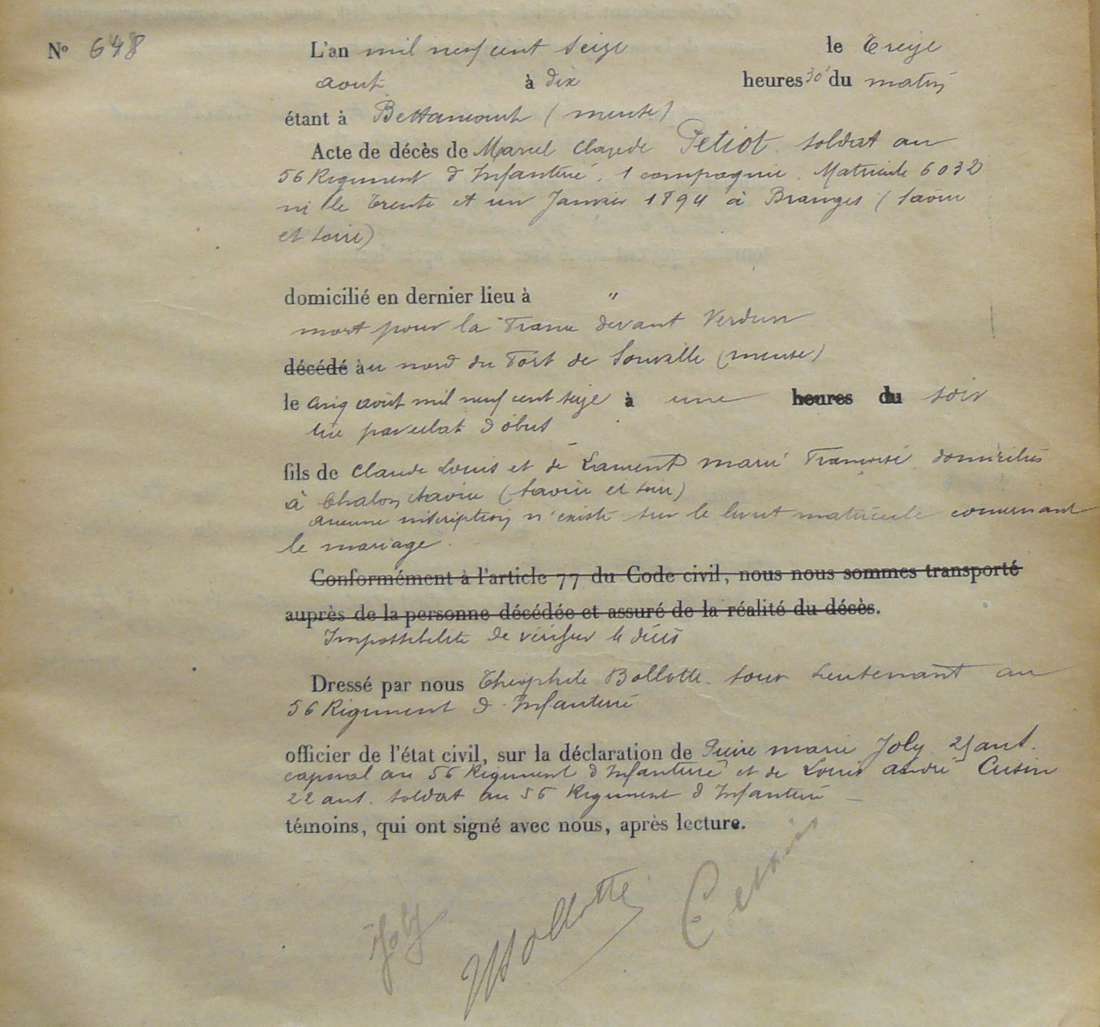 N° 648 L'an mil neuf cent seize le treize
aout à dix heures 30' du matin
étant à Bettancourt (meuse)
Acte de décès de Marcel Claude Petiot soldat au
56 Régiment d'Infanterie, 1 compagnie, Matricule 6032
né le trente et un Janvier 1894 à Branges (Saône
et Loire)
domicilié en dernier lieu à "
mort pour la France devant Verdun
décédé au nord du Fort de Souville (meuse)
le cinq août mil neuf cent seize à une heures du soir
tué par eclat d'obus
fils de Claude Louis et de Laurent marie Francoise domiciliés
à Chalon Saône (Saône et Loire)
aucune inscription n'existe sur le livret matricule concernant
le mariage.
Conformément à l'article 77 du Code civil, nous nous sommes transporté
auprès de la personne décédée et assuré de la réalité du décès.
Impossibilité de vérifier le décès
Dressé par nous Théophile Bollotte sous lieutenant au
56 Régiment d'Infanterie
officier de l'état civil, sur la déclaration de Pierre marie Joly ans.
caporal au 56 Régiment d'Infanterie et de Louis andré Cusin
22 ans. soldat au 56 Régiment d'Infanterie
témoins, qui ont signé avec nous, après lecture.
Joly Bollotte Cusin